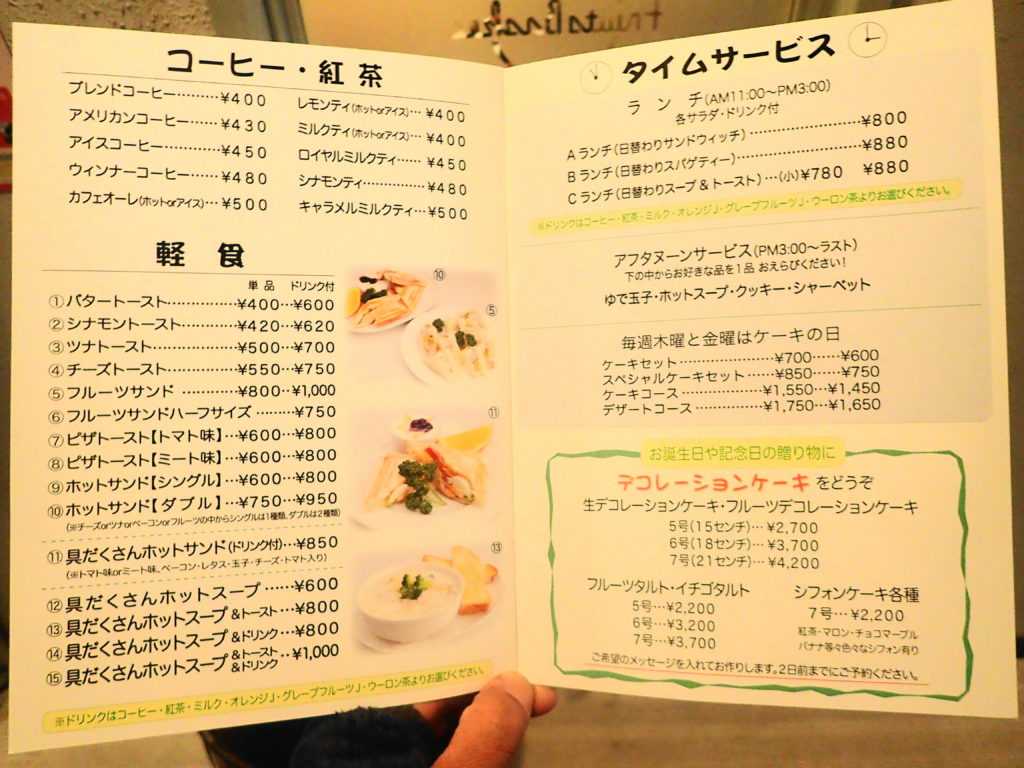 コーヒー・紅茶
ブレンドコーヒー………¥400
アメリカンコーヒー……¥430
アイスコーヒー…………¥450
ウィンナーコーヒー……¥480
カフェオーレ(ホットorアイス)…¥500
レモンティ(ホットorアイス)…¥400
ミルクティ(ホットorアイス)…¥400
ロイヤルミルクティ……¥450
シナモンティ……………¥480
キャラメルミルクティ…¥500
軽 食
単 品 ドリンク付
①バタートースト…………¥400…¥600
②シナモントースト………¥420…¥620
③ツナトースト……………¥500…¥700
④チーズトースト…………¥550…¥750
⑤フルーツサンド ………¥800…¥1,000
⑥フルーツサンドハーフサイズ ………¥750
⑦ピザトースト【トマト味】…¥600…¥800
⑧ピザトースト【ミート味】…¥600…¥800
⑨ホットサンド【シングル】…¥600…¥800
⑩ホットサンド【ダブル】…¥750…¥950
(※チーズorツナorベーコンorフルーツの中からシングルは1種類、ダブルは2種類)
⑪具だくさんホットサンド(ドリンク付)…¥850
(※トマト味orミート味、ベーコン・レタス・玉子・チーズ・トマト入り)
⑫具だくさんホットスープ ……¥600
⑬具だくさんホットスープ &トースト…¥800
⑭具だくさんホットスープ &ドリンク…¥800
⑮具だくさんホットスープ &トースト&ドリンク …¥1,000
※ドリンクはコーヒー・紅茶・ミルク・オレンジJ・グレープフルーツJ・ウーロン茶よりお選びください。
⑩
⑤
⑪
⑬
タイムサービス
ラ ン チ(AM11:00〜PM3:00)
各サラダ・ドリンク付
Aランチ(日替わりサンドウィッチ)………………¥800
Bランチ(日替わりスパゲティー)…………………¥880
Cランチ(日替わりスープ&トースト)…(小)¥780 ¥880
※ドリンクはコーヒー・紅茶・ミルク・オレンジJ・グレープフルーツJ・ウーロン茶よりお選びください。
アフタヌーンサービス(PM3:00〜ラスト)
下の中からお好きな品を1品 おえらびください!
ゆで玉子・ホットスープ・クッキー・シャーベット
毎週木曜と金曜はケーキの日
ケーキセット…………………¥700……¥600
スペシャルケーキセット……¥850……¥750
ケーキコース………………¥1,550…¥1,450
デザートコース……………¥1,750…¥1,650
お誕生日や記念日の贈り物に
デコレーションケーキをどうぞ
生デコレーションケーキ・フルーツデコレーションケーキ
5号(15センチ)…¥2,700
6号(18センチ)…¥3,700
7号(21センチ)…¥4,200
フルーツタルト・イチゴタルト
5号…¥2,200
6号…¥3,200
7号…¥3,700
シフォンケーキ各種
7号…¥2,200
紅茶・マロン・チョコマーブル
バナナ等々色々なシフォン有り
ご希望のメッセージを入れてお作りします。2日前までにご予約ください。